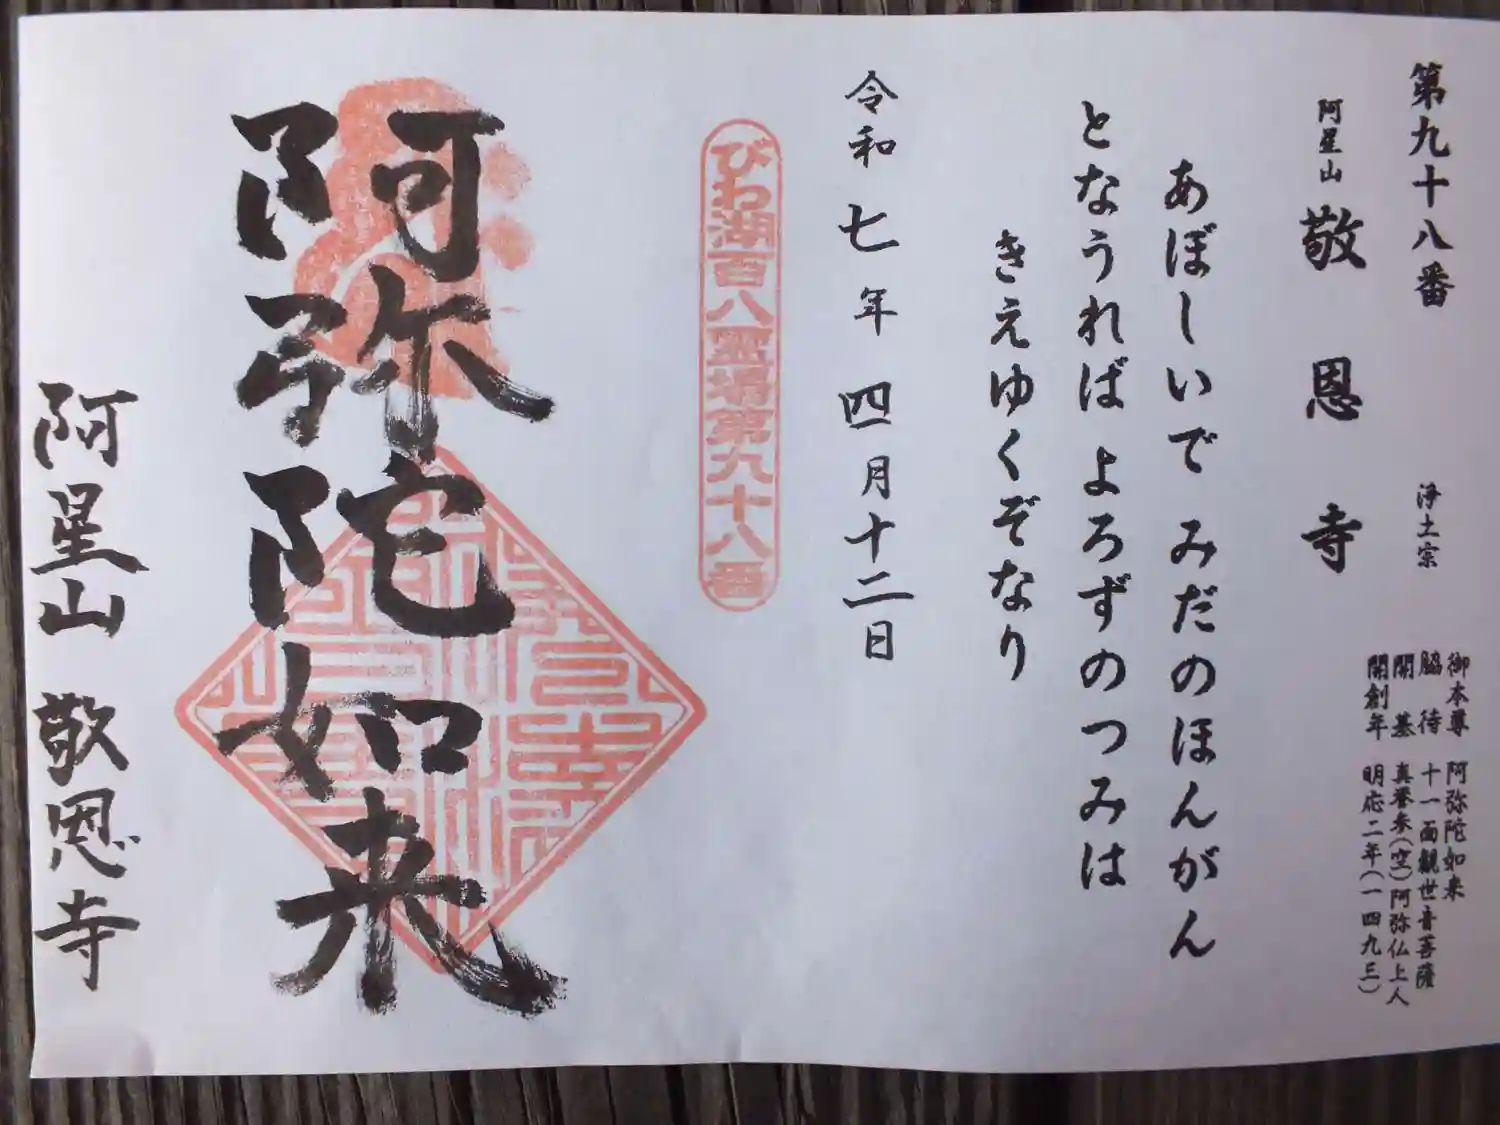 第九十八番 浄土宗
御本尊 阿弥陀如来
脇侍 十一面観世音菩薩
開基 真誉参(空)阿弥仏上人
開創年 明応二年(一四九三)
阿星山 敬恩寺
あぼしいで みだのほんがん
となうれば よろずのつみは
きえゆくぞなり
令和七年四月十二日
びわ湖百八霊場第九十八番
阿弥陀如来
阿星山 敬恩寺